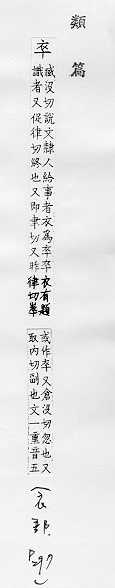 類篇
卒
臧沒切說文隸人給事者衣為卒卒衣有題
識者又促律切終也又即聿切又昨律切崒
或作卆又倉沒切忽也又
取內切副也文一重音五
(衣部, P297)